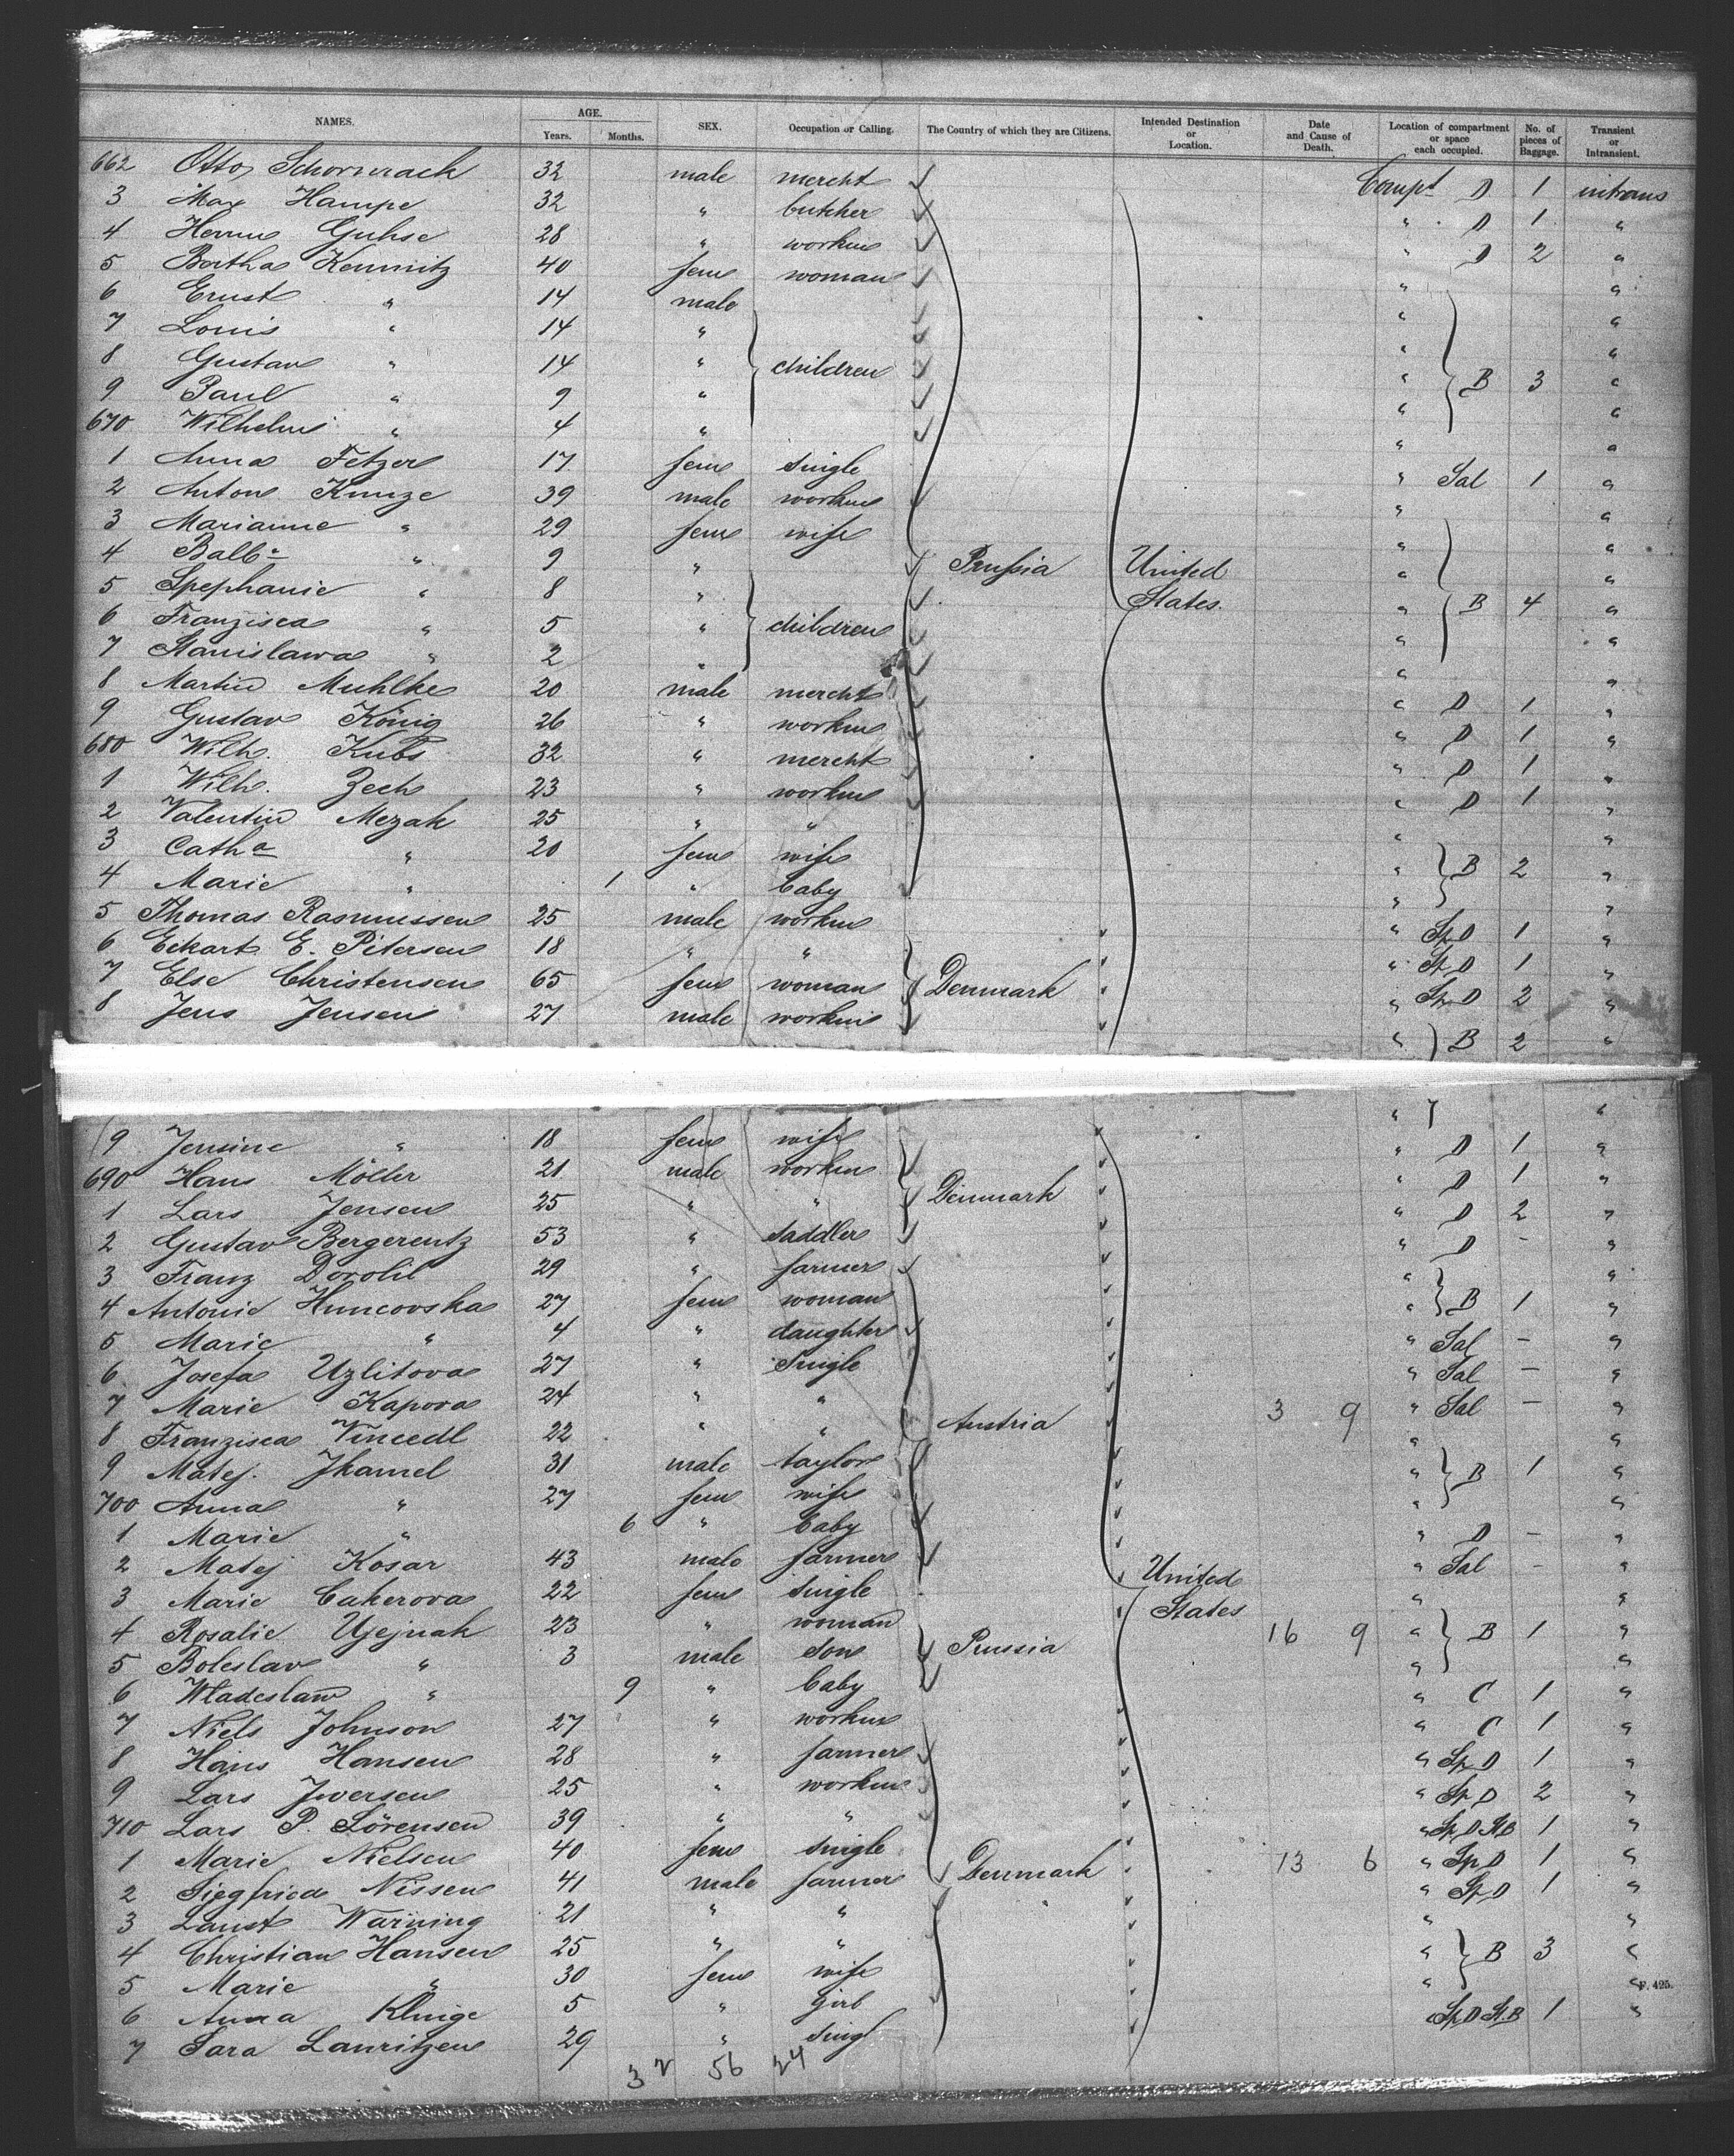 NAMES. AGE. Years. Months. SEX. Occupation or Calling. The Country of which they are Citizens. Intended Destination or Location. Date and Cause of Death. Location of compartment or space each occupied. No. of pieces of Baggage. Transient or Intransient.
662 Otto Schornrack 32 male mercht Compt D 1 intrans
3 Max Hampe 32 " butcher " D 1 "
4 Herm Guhse 28 " workm " D 2 "
5 Bertha Kemnitz 40 fem woman " "
6 Ernst " 14 male " "
7 Louis " 14 " " "
8 Gustav " 14 " children " B 3 "
9 Paul " 9 " " "
670 Wilhelm " 4 " " "
1 Anna Fetzer 17 fem single " Sal 1 "
2 Anton Kunze 39 male workm " "
3 Marianne " 29 fem wife " "
4 Balba " 9 " Prussia United " "
5 Spephanie " 8 " States. " B 4 "
6 Franzisca " 5 " children " "
7 Stanislawa " 2 " " "
8 Martin Muhlke 20 male mercht " D 1 "
9 Gustav König 26 " workm " D 1 "
680 Wilh. Kubs 32 " mercht " D 1 "
1 Wilh. Zech 23 " workm " D 1 "
2 Valentin Mezak 25 " " " "
3 Catha " 20 fem wife " B 2 "
4 Marie " 1 " baby " "
5 Thomas Rasmussen 25 male workm " Sp D 1 "
6 Eckart E. Pitersen 18 " " " Sp D 1 "
7 Else Christensen 65 fem woman Denmark " Sp D 2 "
8 Jens Jensen 27 male workm " B 2 "
9 Jensine " 18 fem wife " "
690 Hans Möller 21 male workm " D 1 "
1 Lars Jensen 25 " " Denmark " D 1 "
2 Gustav Bergerentz 53 " saddler " D 2 "
3 Franz Dorolil 29 " farmer " D - "
4 Antonie Huncovska 27 fem woman " "
5 Marie " 4 " daughter " B 1 "
6 Josefa Uzlitova 27 " single " Sal - "
7 Marie Kapova 24 " " " Sal - "
8 Franzisca Vincedl 22 " " Austria 3 9 " Sal - "
9 Matej. Jkamel 31 male taylor " "
700 Anna " 27 fem wife " B 1 "
1 Marie " 6 " baby " "
2 Matej Kosar 43 male farmer " D - "
3 Marie Cakerova 22 fem single United " Sal - "
4 Rosalie Ujejnak 23 " woman States " "
5 Boleslav " 3 male son Prussia 16 9 " B 1 "
6 Wladeslaw " 9 " baby " "
7 Niels Johnson 27 " workm " C 1 "
8 Hans Hansen 28 " farmer " C 1 "
9 Lars Iversen 25 " workm " Sp D 1 "
710 Lars P. Sörensen 39 " " " Sp D 2 "
1 Marie Nielsen 40 fem single " Sp D St B 1 "
2 Siegfried Nissen 41 male farmer Denmark 13 6 " Sp D 1 "
3 Laust Warning 21 " " " Sp D 1 "
4 Christian Hansen 25 " " " "
5 Marie " 30 fem wife " B 3 "
6 Anna Kluge 5 " girl " "
F. 425.
7 Sara Lauritzen 29 " singl " Sp D St. B 1 "
32 56 24